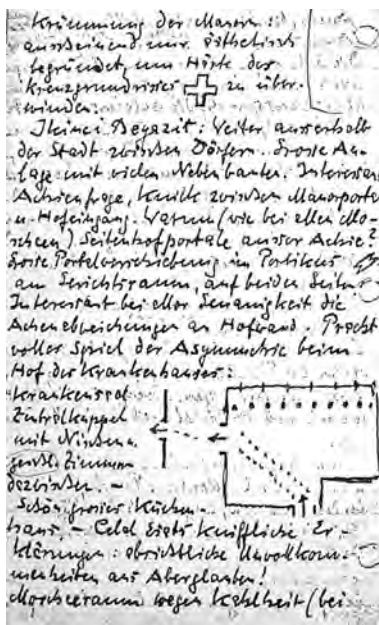 Krümmung der Mauern:
anscheinend nur ästhetisch
begründet, um Härte des
Kreuzgrundrisses zu über-
winden.
Ikinci Beyazit: Weiter ausserhalb
der Stadt zwischen Dörfern. Grosse An-
lage mit vielen Nebenbauten. Interessant
Achsenfrage, Knicke zwischen
u. Hofeingang. Warum (wie bei allen Mo-
scheen) Seitenhofportale ausser Achse?
Grosse Portalverschiebung im Portikus
am Gerichtsraum, auf beiden Seiten
Interessant bei aller Genauigkeit die
Achsenabweichungen an Hofwand. Pracht-
volles Spiel der Asymmetrie beim
Hof des Krankenhauses:
Krankensaal
Zentralkuppel
mit Nischen
Zimmern
dazwischen. –
Schön grosses Küchen-
haus. – Celal kniffliche Er-
klärungen: absichtliche Unvollkom-
menheiten aus Aberglauben!
Moscheeraum wegen Kahlheit (bei